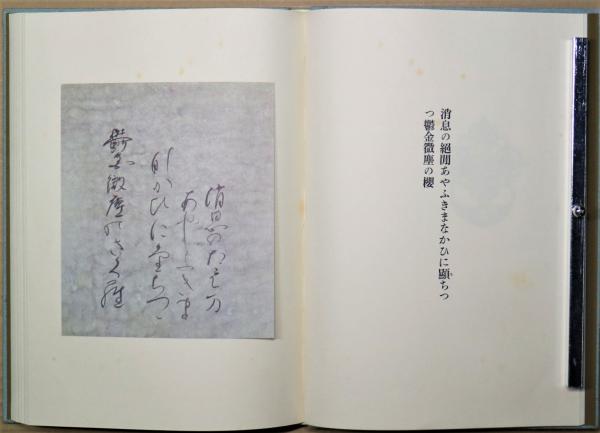 消息の絕閒あやふきまなかひに顯ちつ
つ鬱金微塵の櫻
消息のたえま
あやふきま
なかひにたちつつ
鬱金微塵のさくら